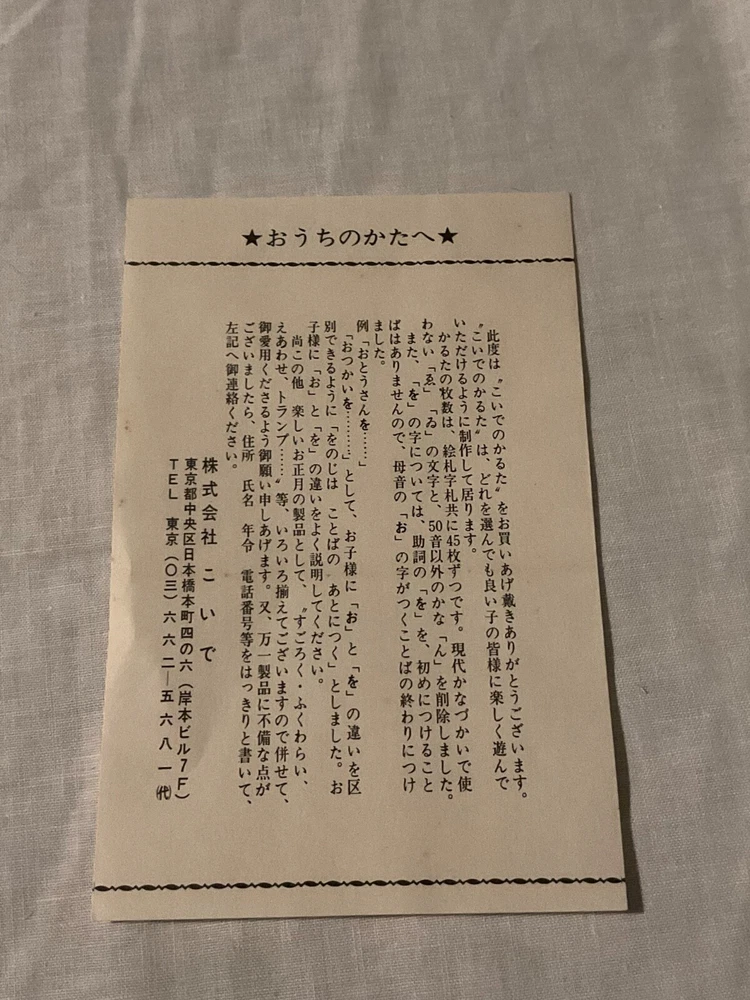 ★おうちのかたへ★
此度は〝こいでのかるた〟をお買いあげ戴きありがとうございます。
〝こいでのかるた〟は、どれを選んでも良い子の皆様に楽しく遊んで
いただけるように制作して居ります。
かるたの枚数は、絵札字札共に45枚ずつです。現代かなづかいで使
わない「ゑ」「ゐ」の文字と、50音以外のかな「ん」を削除しました。
また、「を」の字については、助詞の「を」を、初めにつけること
ばはありませんので、母音の「お」の字がつくことばの終わりにつけ
ました。
例「おとうさんを……」
「おつかいを………」として、お子様に「お」と「を」の違いを区
別できるように「をのじは ことばの あとにつく」としました。お
子様に「お」と「を」の違いをよく説明してください。
尚この他 楽しいお正月の製品として、〝すごろく・ふくわらい、
えあわせ、トランプ……〟等、いろいろ揃えてございますので併せて、
御愛用くださるよう御願い申しあげます。又、万一製品に不備な点が
ございましたら、住所 氏名 年令 電話番号等をはっきりと書いて、
左記へ御連絡ください。
株式会社 こいで
東京都中央区日本橋本町四の六(岸本ビル7F)
TEL 東京(〇三)六六二―五六八一㈹